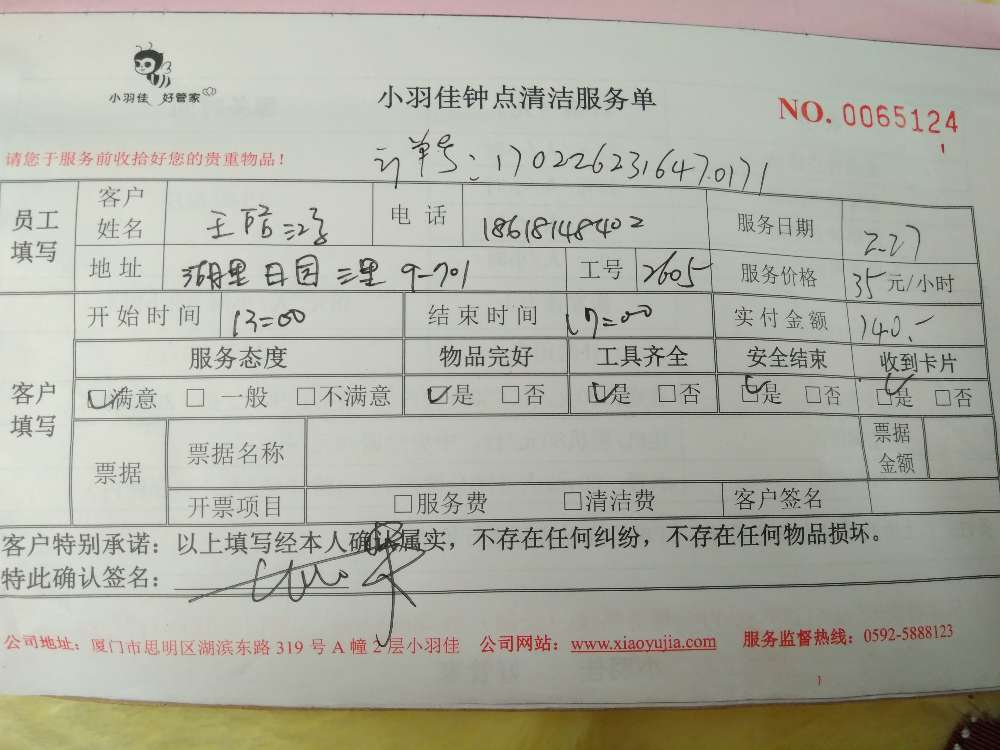 小羽佳 好管家
小羽佳钟点清洁服务单
NO. 0065124
请您于服务前收拾好您的贵重物品!
订单号:170226231647.0171
员工填写 客户姓名 王 电话 18618148402 服务日期 2.27
地址 湖里 日园 三里 9-701 工号 2605 服务价格 35元/小时
客户填写 开始时间 13=00 结束时间 17=00 实付金额 140.-
服务态度 物品完好 工具齐全 安全结束 收到卡片
☑满意 □一般 □不满意 ☑是 □否 ☑是 □否 ☑是 □否 ☑是 □否
票据 票据名称 票据金额
开票项目 □服务费 □清洁费 客户签名
客户特别承诺:以上填写经本人确认属实,不存在任何纠纷,不存在任何物品损坏。
特此确认签名:
公司地址:厦门市思明区湖滨东路 319 号 A 幢 2 层小羽佳 公司网站:www.xiaoyujia.com 服务监督热线:0592-5888123